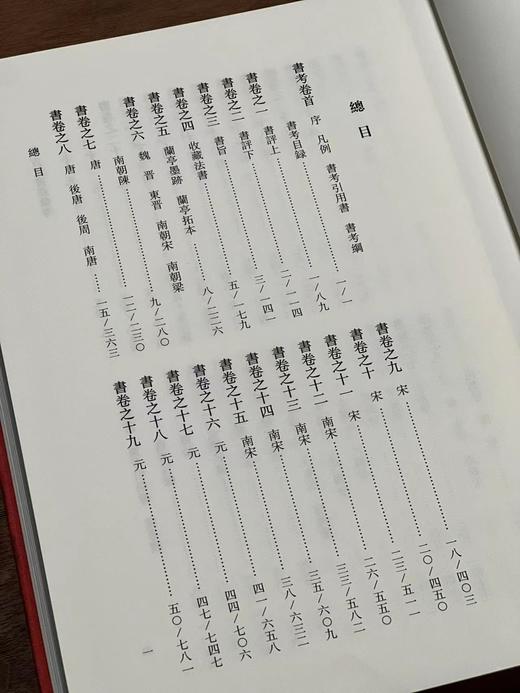 總目
書考卷首 序 凡例 書考引用書 書考綱 一/一
書考目録 一/八九
書卷之一 書評上 二/一一四
書卷之二 書評下 三/一四一
書卷之三 書旨 五/一七九
書卷之四 收藏法書 八/二三六
書卷之五 蘭亭墨跡 蘭亭拓本
書卷之六 魏 晉 東晉 南朝宋 南朝梁
南朝陳 九/二八〇
書卷之七 唐 一二/三三〇
書卷之八 唐 後唐 後周 南唐 一五/三六三
書卷之九 宋 一八/四〇三
書卷之十 宋 二〇/四五〇
書卷之十一 宋 二三/五一一
書卷之十二 南宋 二六/五五〇
書卷之十三 南宋 三三/五八二
書卷之十四 南宋 三五/六〇九
書卷之十五 南宋 三八/六三二
書卷之十六 元 四一/六五八
書卷之十七 元 四四/七〇六
書卷之十八 元 四七/七四七
書卷之十九 元 五〇/七八一
總目
一